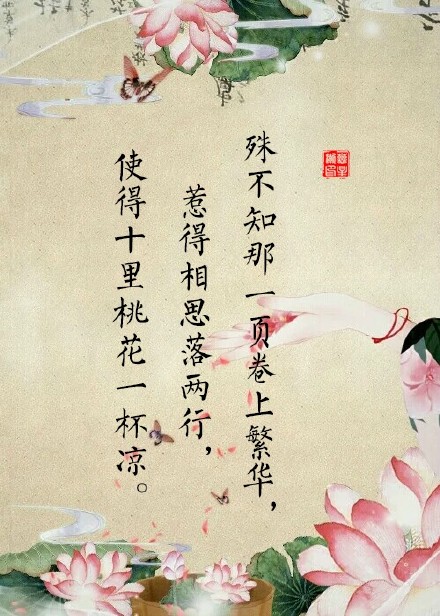 殊不知那一页卷上繁华，
惹得相思落两行，
使得十里桃花一杯凉。